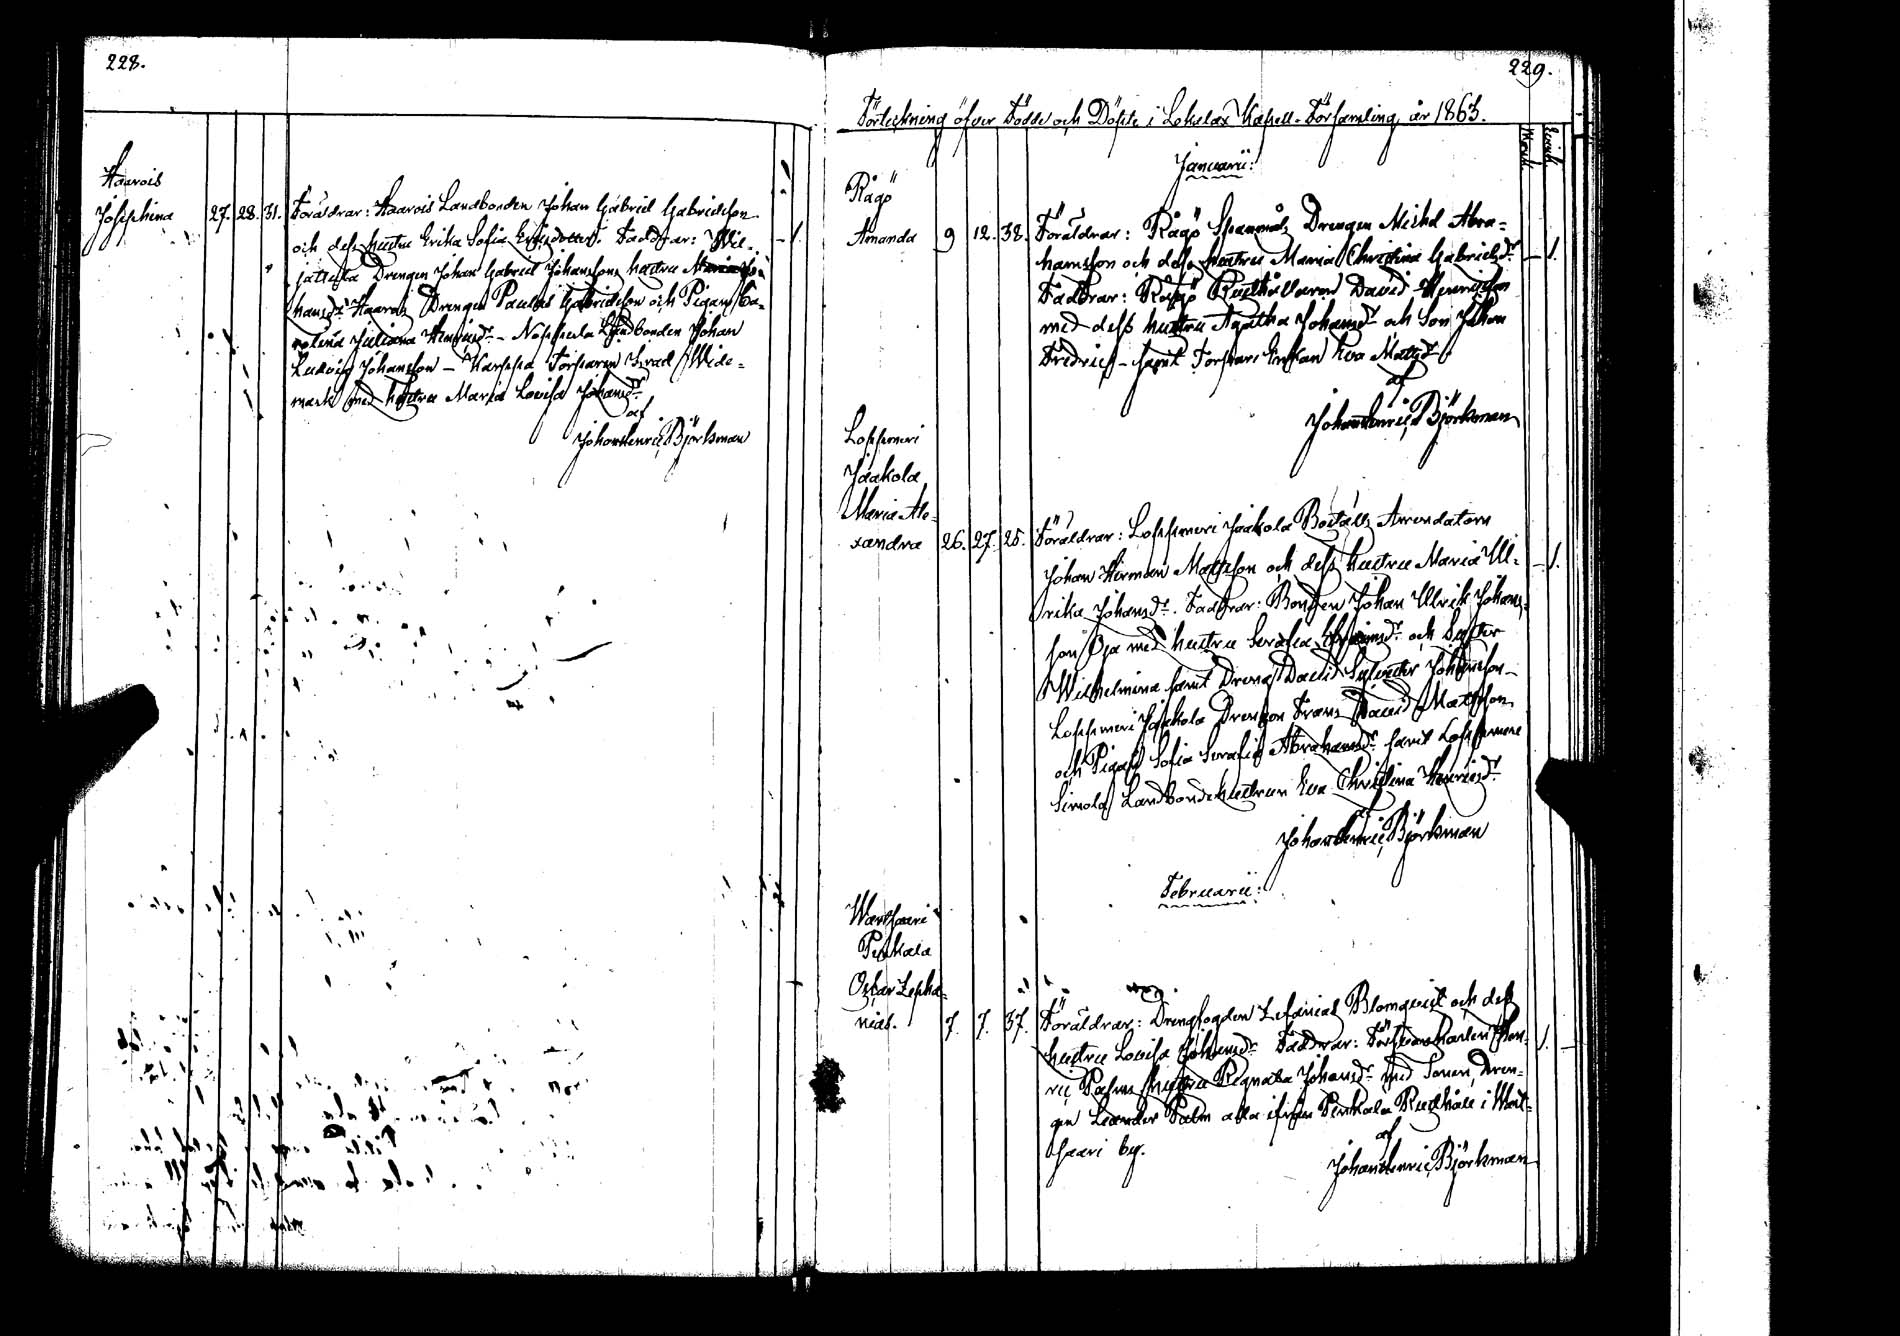 228.
Haarois
Josephina 27. 28. 31. Föräldrar: Haarois Landbonden Johan Gabriel Gabrielsson
och dess hustru Erika Sofia Faddrar: Wil-
Drengen Johan Gabriel Johanssons hustru
hansdr Haarois Drengen Paulus Gabrielsson och Pigan Ca-
rolina Juliana Henricsdr - Landbonden Johan
Ludvig Johansson - Karppa Torparen Wide-
mark med hustru Maria Lovisa Johansdr
af
Johan Henric Björkman
229.
Förteckning öfver Födde och Döpte i Lokalax Kapell-Församling år 1863.
Januarii:
Rågö
Amanda 9 12. 38. Föräldrar: Rågö Spanmåls Drengen Michel Abra-
hamsson och dess hustru Maria Christina Gabrielsdr - 1.
Faddrar: Rågö Rusthållaren David Henricsson
med dess hustru Agatha Johansdr och Son Johan
Fredric - samt Torpare Enkan Eva Mattsdr
af
Johan Henric Björkman
Loppmeri
Jaakola
Maria Ale-
xandra 26. 27. 25. Föräldrar: Loppmeri Jaakola Boställs Arrendatorn
Johan Herman Mattsson och dess hustru Maria Ul- - 1.
rika Johansdr. Faddrar: Bonden Johan Ulrik Johans-
son Öja med hustru Serafia och Syster
Wilhelmina samt Dreng David Sylvester Johansson -
Loppmeri Jaakola Drengen Frans David Mattsson
och Pigan Sofia Serafia Abrahamsdr samt Loppmeri
Simola Landbondehustrun Eva Christina Henricsdr
af
Johan Henric Björkman
Februarii:
Wartsaari
Penkala
Oscar Zepha-
nias. 7. 7. 37. Föräldrar: Drengfogden Zefanias Blomqvist och dess
hustru Lovisa Johansdr Faddrar: Hen- 1.
ric Palms hustru Regnata Johansdr med Sonen, Dren-
gen Leander Palm alla ifrån Penkala Rusthåll i Wart-
saari by.
af
Johan Henric Björkman